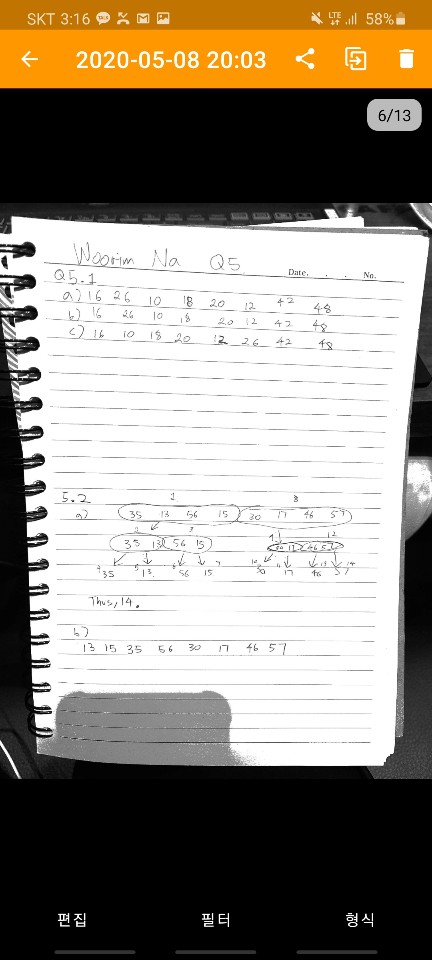 SKT 3:16 LTE 58%
2020-05-08 20:03
6/13
Woorim Na Q5
Date. . . No.
Q5.1
a) 16 26 10 18 20 12 42 48
b) 16 26 10 18 20 12 42 48
c) 16 10 18 20 12 26 42 48
5.2
1 8
a) 35 13 56 15 30 17 46 57
2 3 12
35 13 56 15 17 46 57
4 5 6 7 13 14
35 13 56 15 30 17 46 57
Thus, 14.
b)
13 15 35 56 30 17 46 57
편집 필터 형식